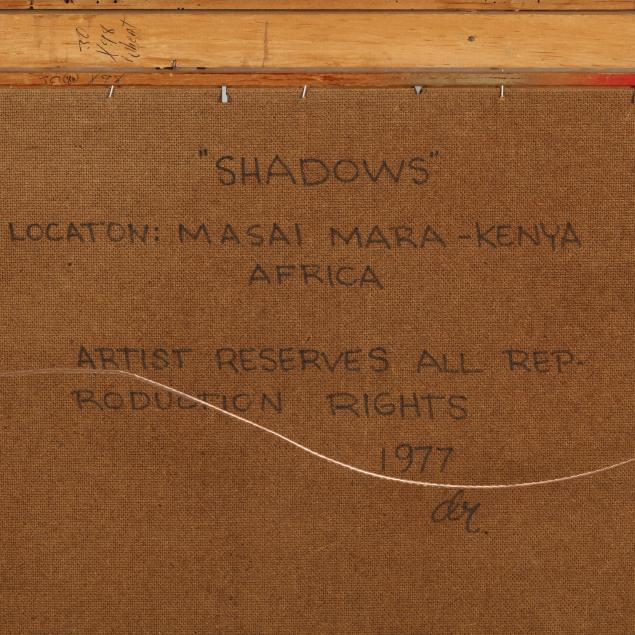 30
X48
"SHADOWS"
LOCATON: MASAI MARA-KENYA
AFRICA
ARTIST RESERVES ALL REP-
RODUCTION RIGHTS
1977